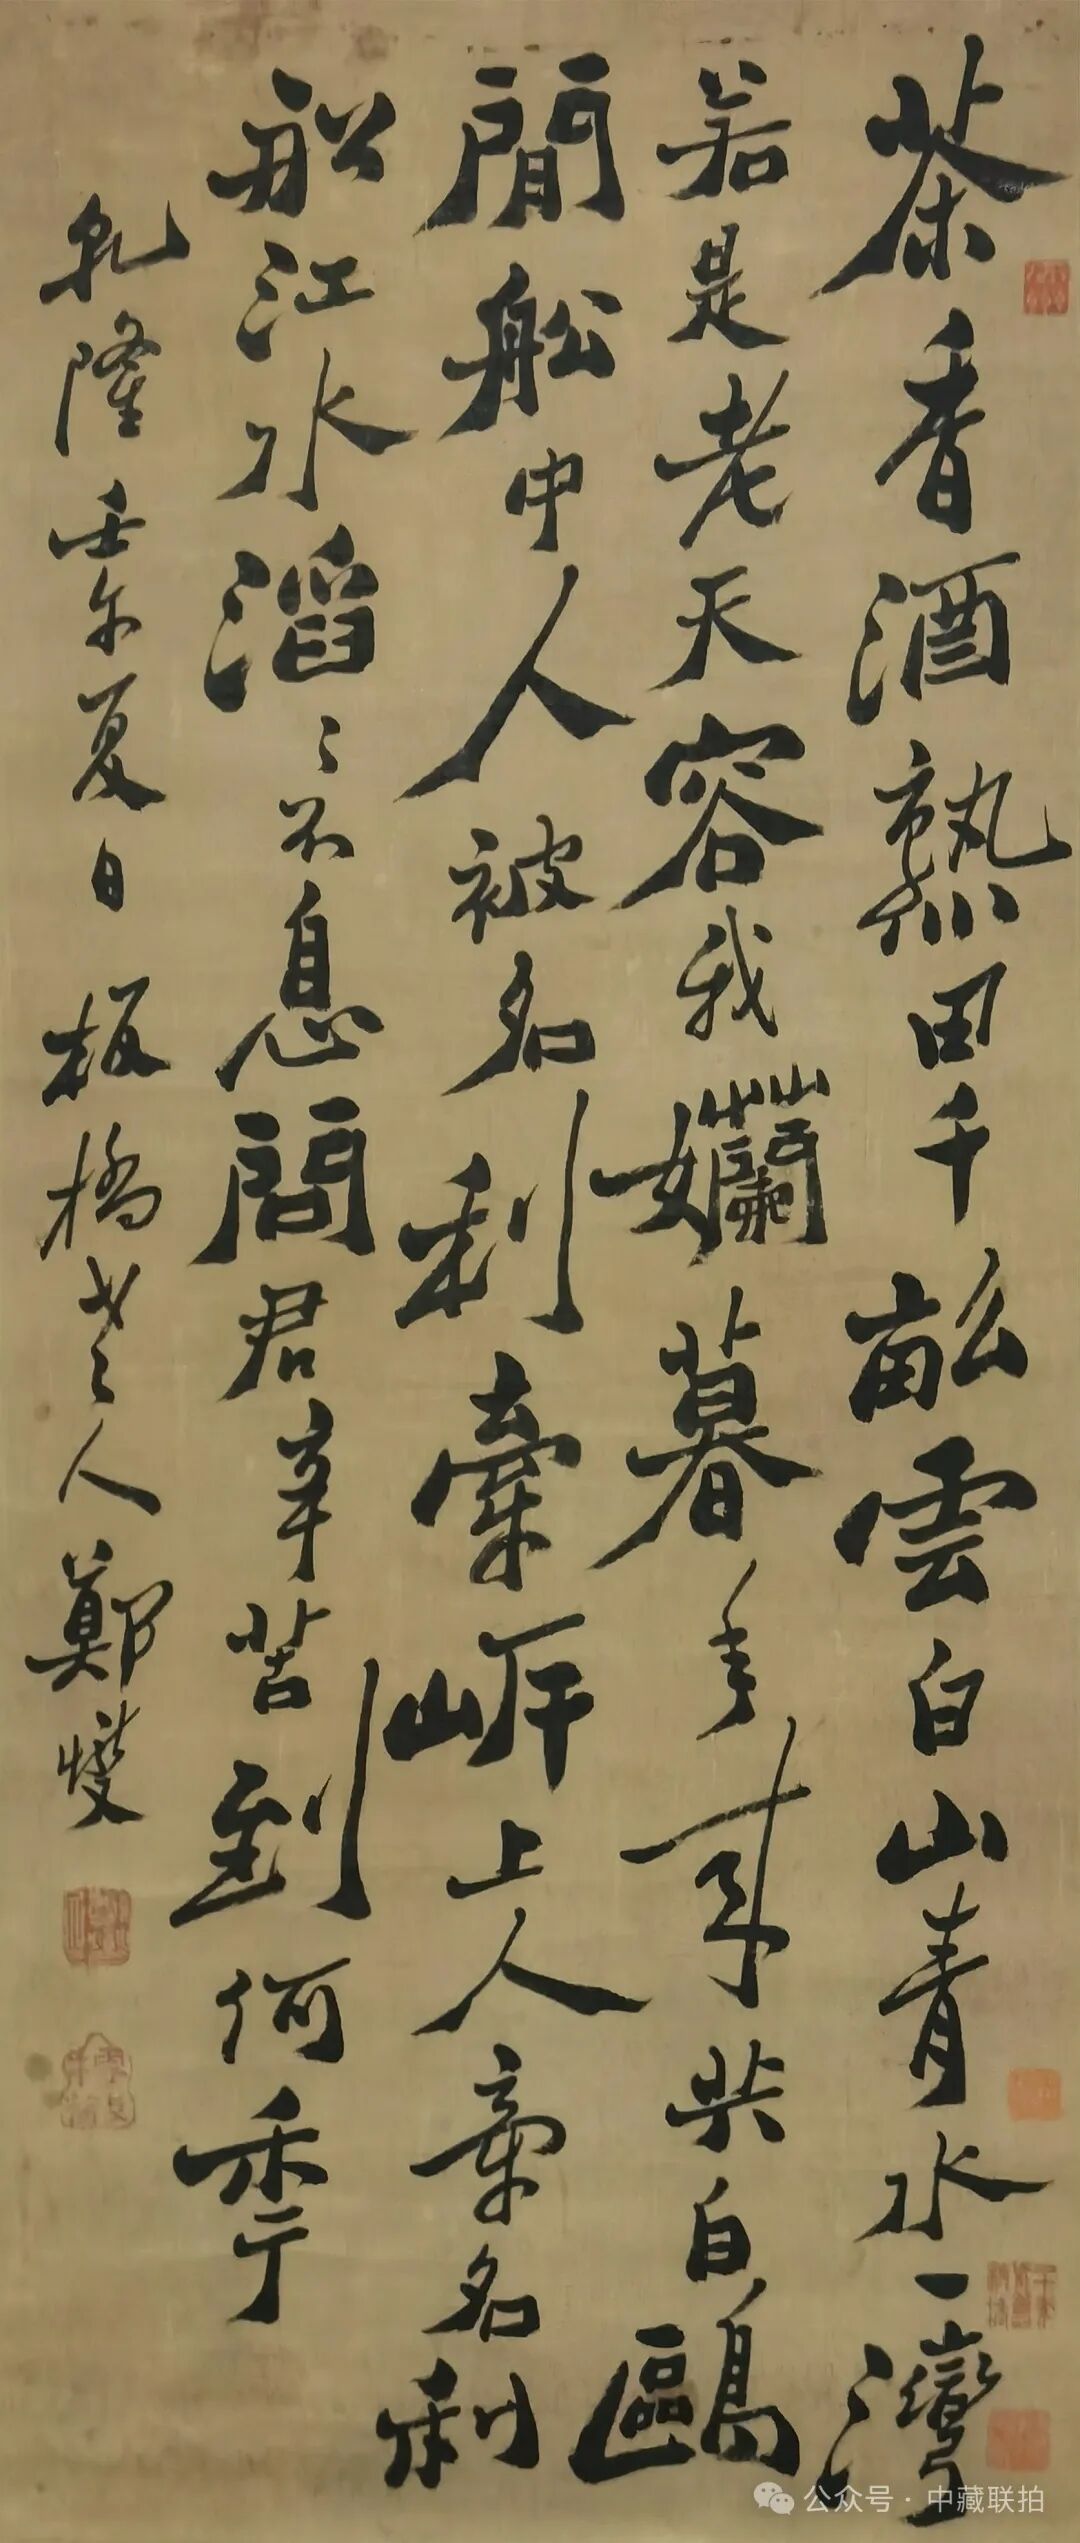 茶香酒熟田千畝雲白山青水一灣
若是老天容我嬾暮年來共白鷗
閒船中人被名利牽岸上人牽名利
船江水滔〻不息問君辛苦到何年
乾隆壬午夏日板橋老人鄭燮
公众号·中藏联拍